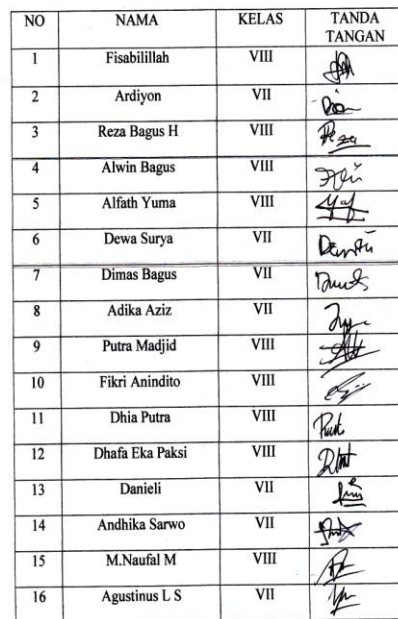 NO NAMA KELAS TANDA TANGAN
1 Fisabilillah VIII
2 Ardiyon VII
3 Reza Bagus H VIII Reza
4 Alwin Bagus VIII
5 Alfath Yuma VIII
6 Dewa Surya VII
7 Dimas Bagus VII
8 Adika Aziz VII
9 Putra Madjid VIII
10 Fikri Anindito VIII
11 Dhia Putra VIII
12 Dhafa Eka Paksi VIII
13 Danieli VII
14 Andhika Sarwo VII
15 M.Naufal M VIII
16 Agustinus L S VII